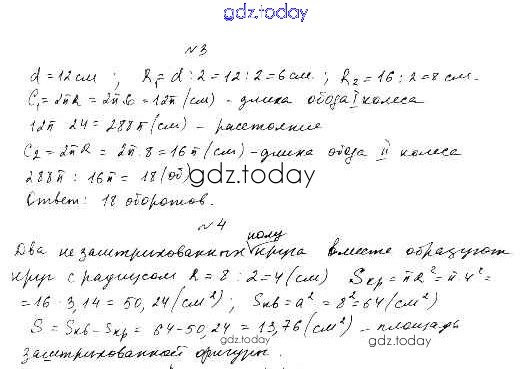 gdz.today
№3
d = 12 см ; R₁ = d : 2 = 12 : 2 = 6 см ; R₂ = 16 : 2 = 8 см.
C₁ = 2πR = 2π·6 = 12π (см) - длина обода I колеса
12π · 24 = 288π (см) - расстояние
C₂ = 2πR = 2π·8 = 16π (см) - длина обода II колеса
288π : 16π = 18 (об)
gdz.today
Ответ: 18 оборотов.
№4
Два незаштрихованных полукруга вместе образуют
круг с радиусом R = 8 : 2 = 4 (см) Sкр = πR² = π4² =
= 16 · 3,14 = 50,24 (см²) ; Sкв = a² = 8² = 64 (см²)
S = Sкв - Sкр = 64 - 50,24 = 13,76 (см²) - площадь
заштрихованной фигуры.
gdz.today